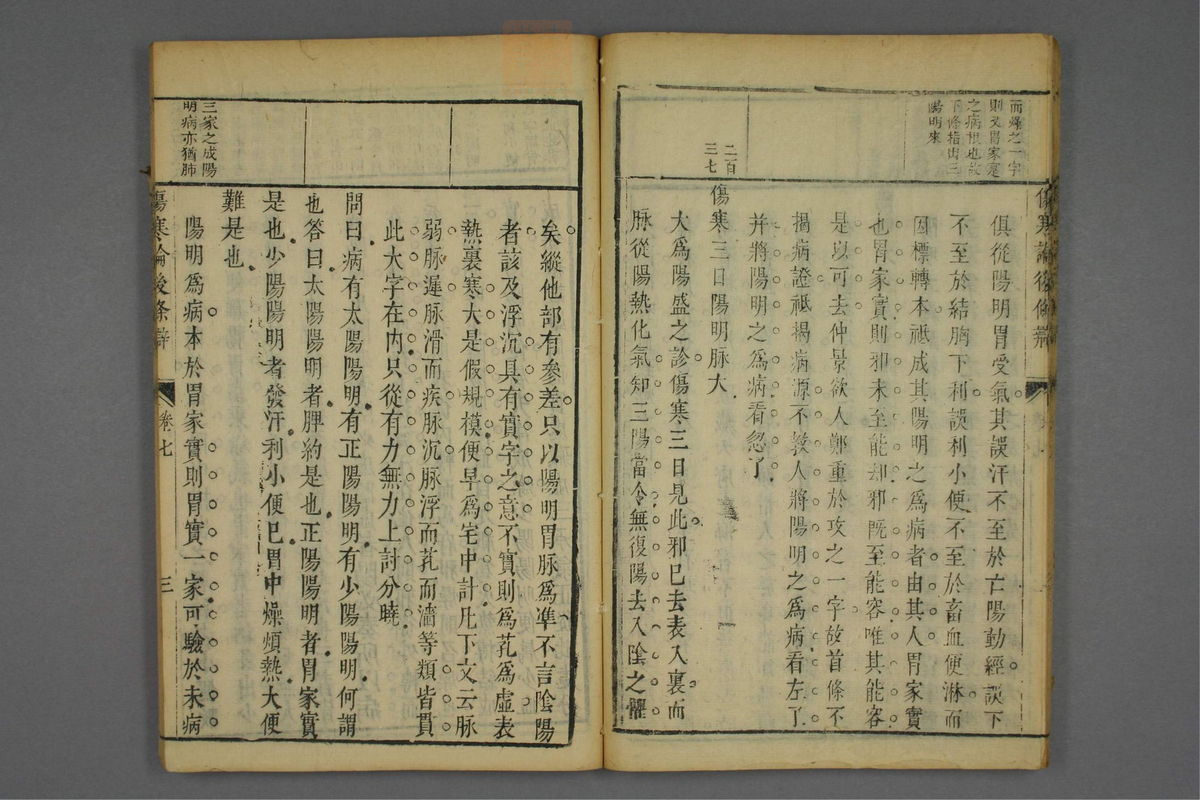 而燥之一字
則又胃家寔
之病根也故
下條指出三
陽明來
二百
三七
傷寒論後條辯
俱從陽明胃受氣其誤汗不至於亡陽動經誤下
不至於結胸下利誤利小便不至於畜血便淋而
因標轉本祗成其陽明之為病者由其人胃家實
也胃家實則邪未至能却邪既至能容唯其能容
是以可去仲景欲人鄭重於攻之一字故首條不
揭病證祗揭病源不教人將陽明之為病看左了
并將陽明之為病看忽了
傷寒三日陽明脉大
大爲陽盛之診傷寒三日見此邪已去表入裏而
脉從陽熱化氣知三陽當令無復陽去入陰之懼
矣縱他部有參差只以陽明胃脉爲準不言陰陽
者該及浮沉具有實字之意不實則爲芤爲虛表
熱裏寒大是假規模便早爲宅中計凡下文云脉
弱脉遲脉滑而疾脉沉脉浮而芤而濇等類皆貫
此大字在内只從有力無力上討分曉
問曰病有太陽陽明有正陽陽明有少陽陽明何謂
也答曰太陽陽明者脾約是也正陽陽明者胃家實
是也少陽陽明者發汗利小便已胃中燥煩熱大便
難是也
陽明爲病本於胃家實則胃實一家可驗於未病
三家之成陽
明病亦猶肺
傷寒論後条辯
卷七
三